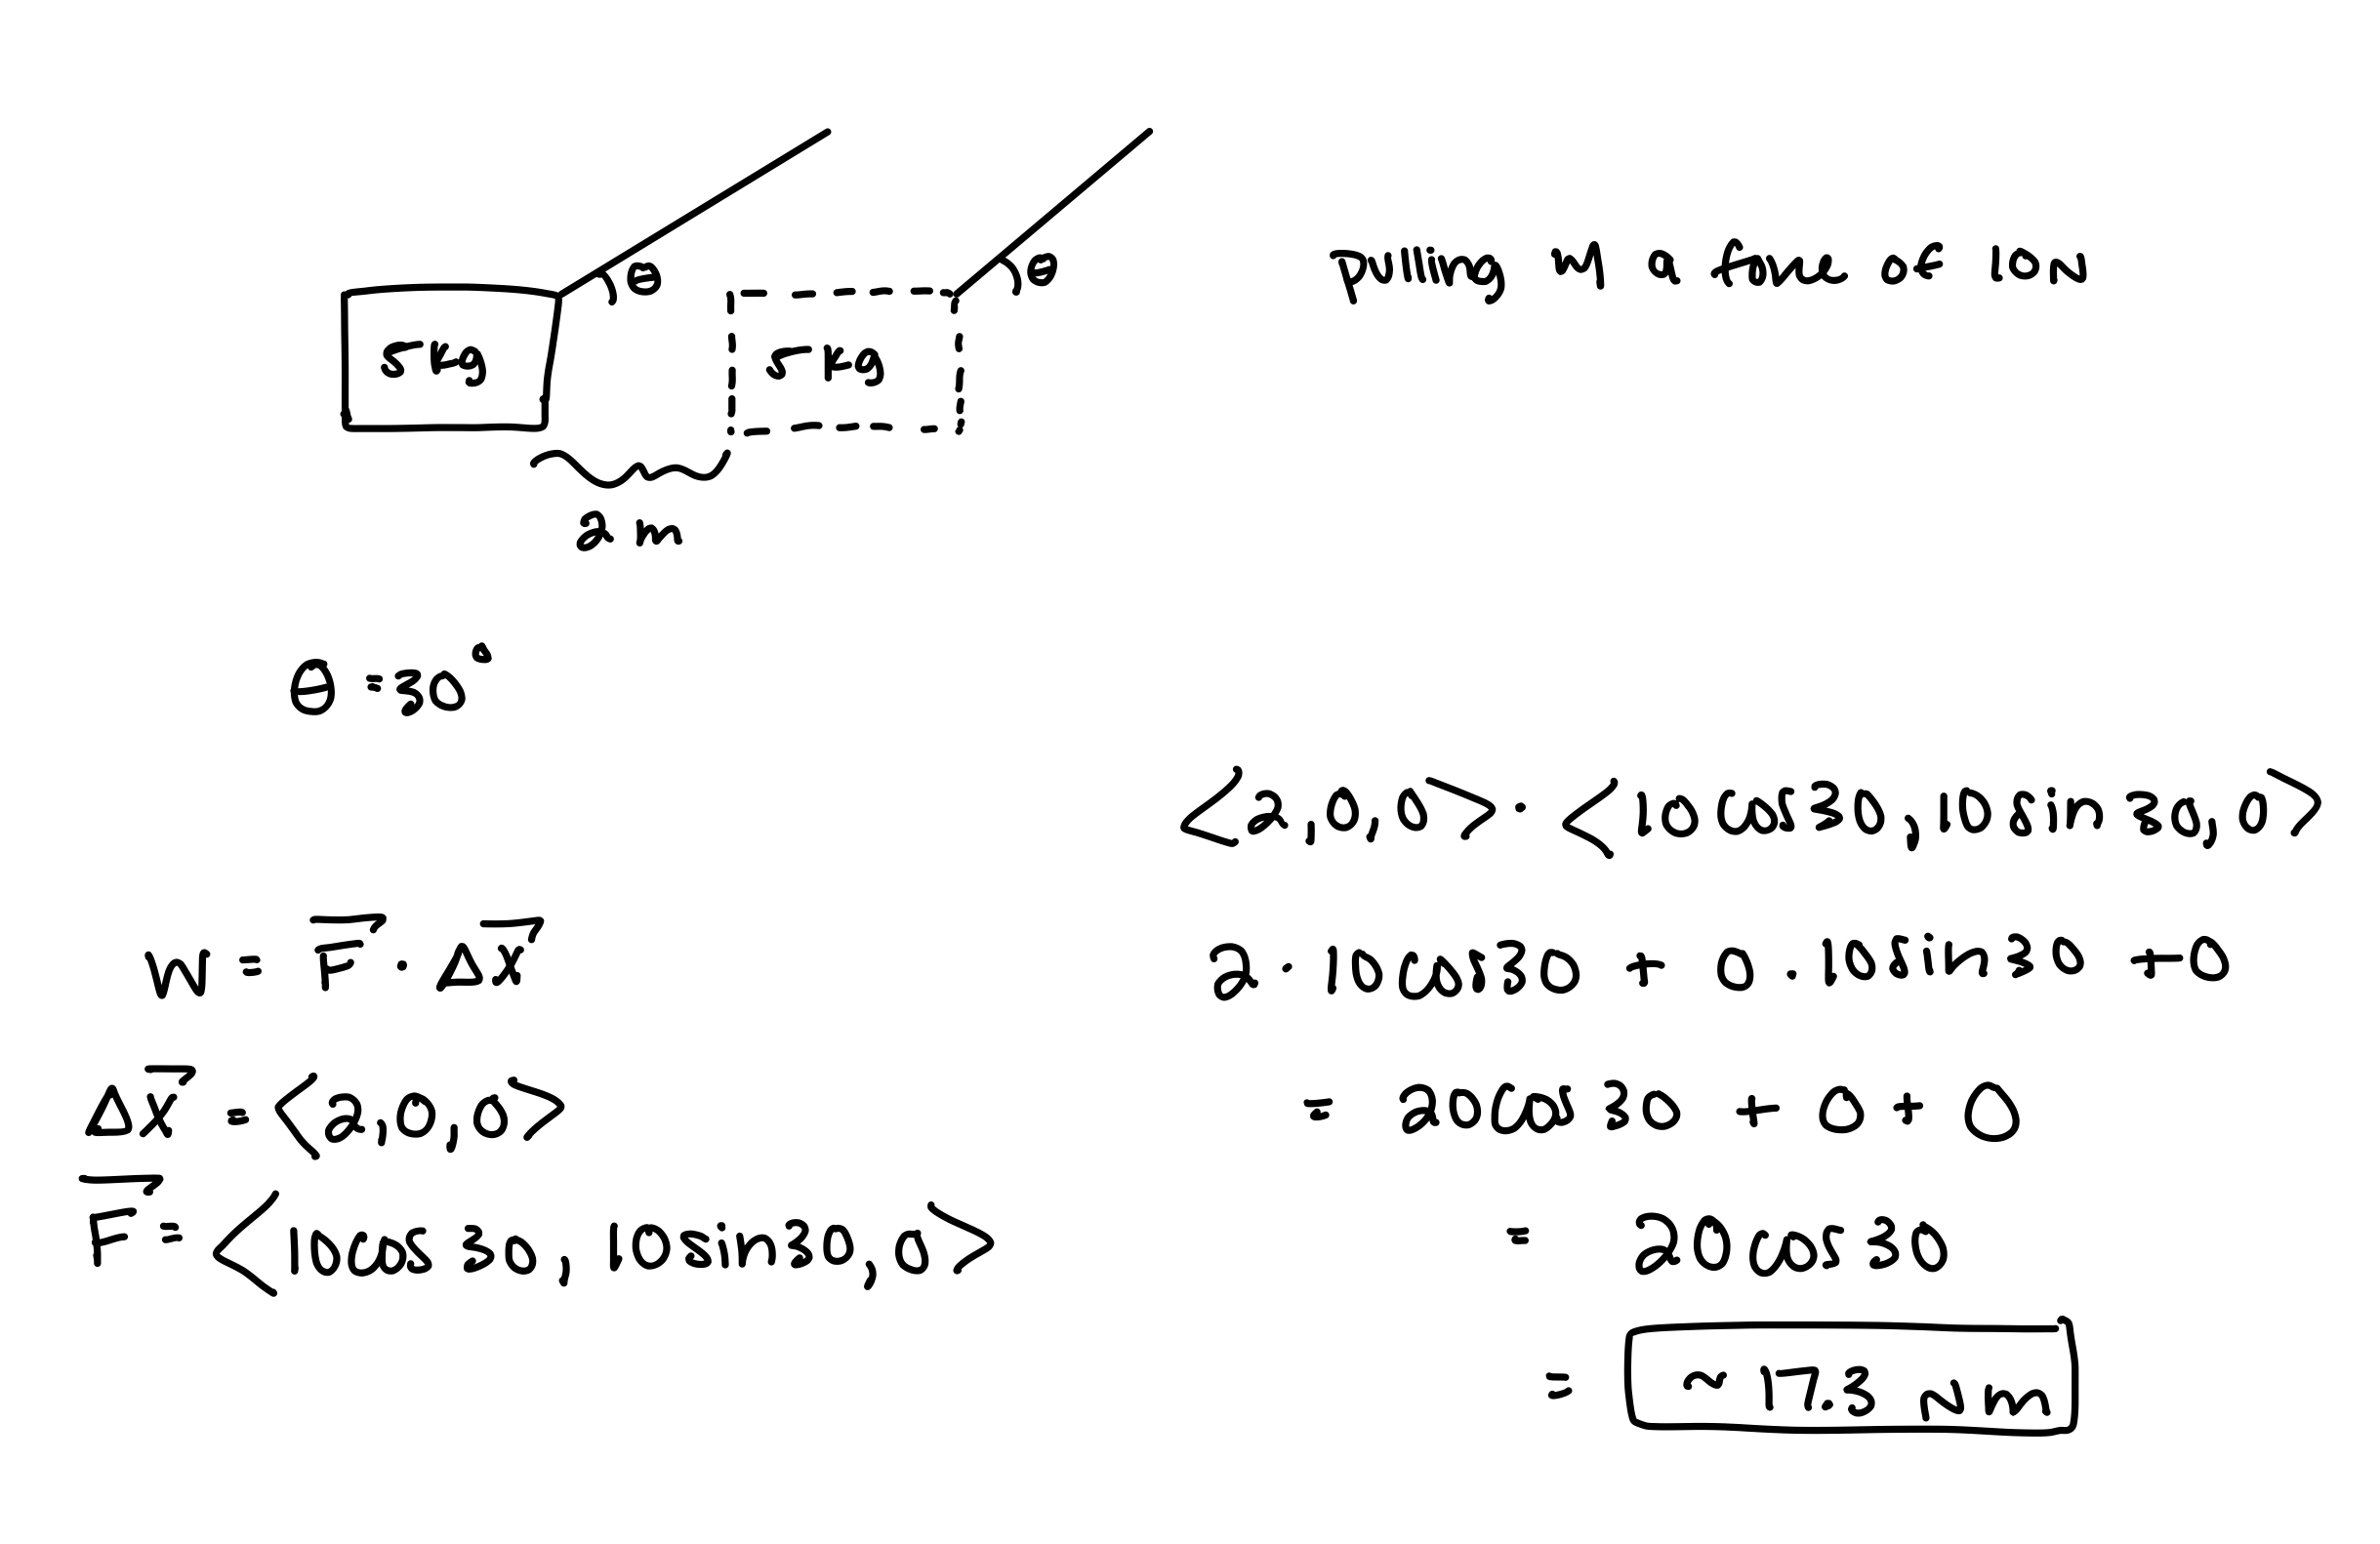 θ
θ
pulling w/ a force of 10N
5kg
5kg
2 m
θ = 30°
<2,0,0> · <10cos30, 10sin30, 0>
W = F · ΔX
2 · 10cos30 + 0 · 10sin30 + 0
ΔX = <2,0,0>
= 20cos30 + 0 + 0
F = <10cos 30, 10sin30, 0>
= 20cos30
= ~ 17.3 Nm